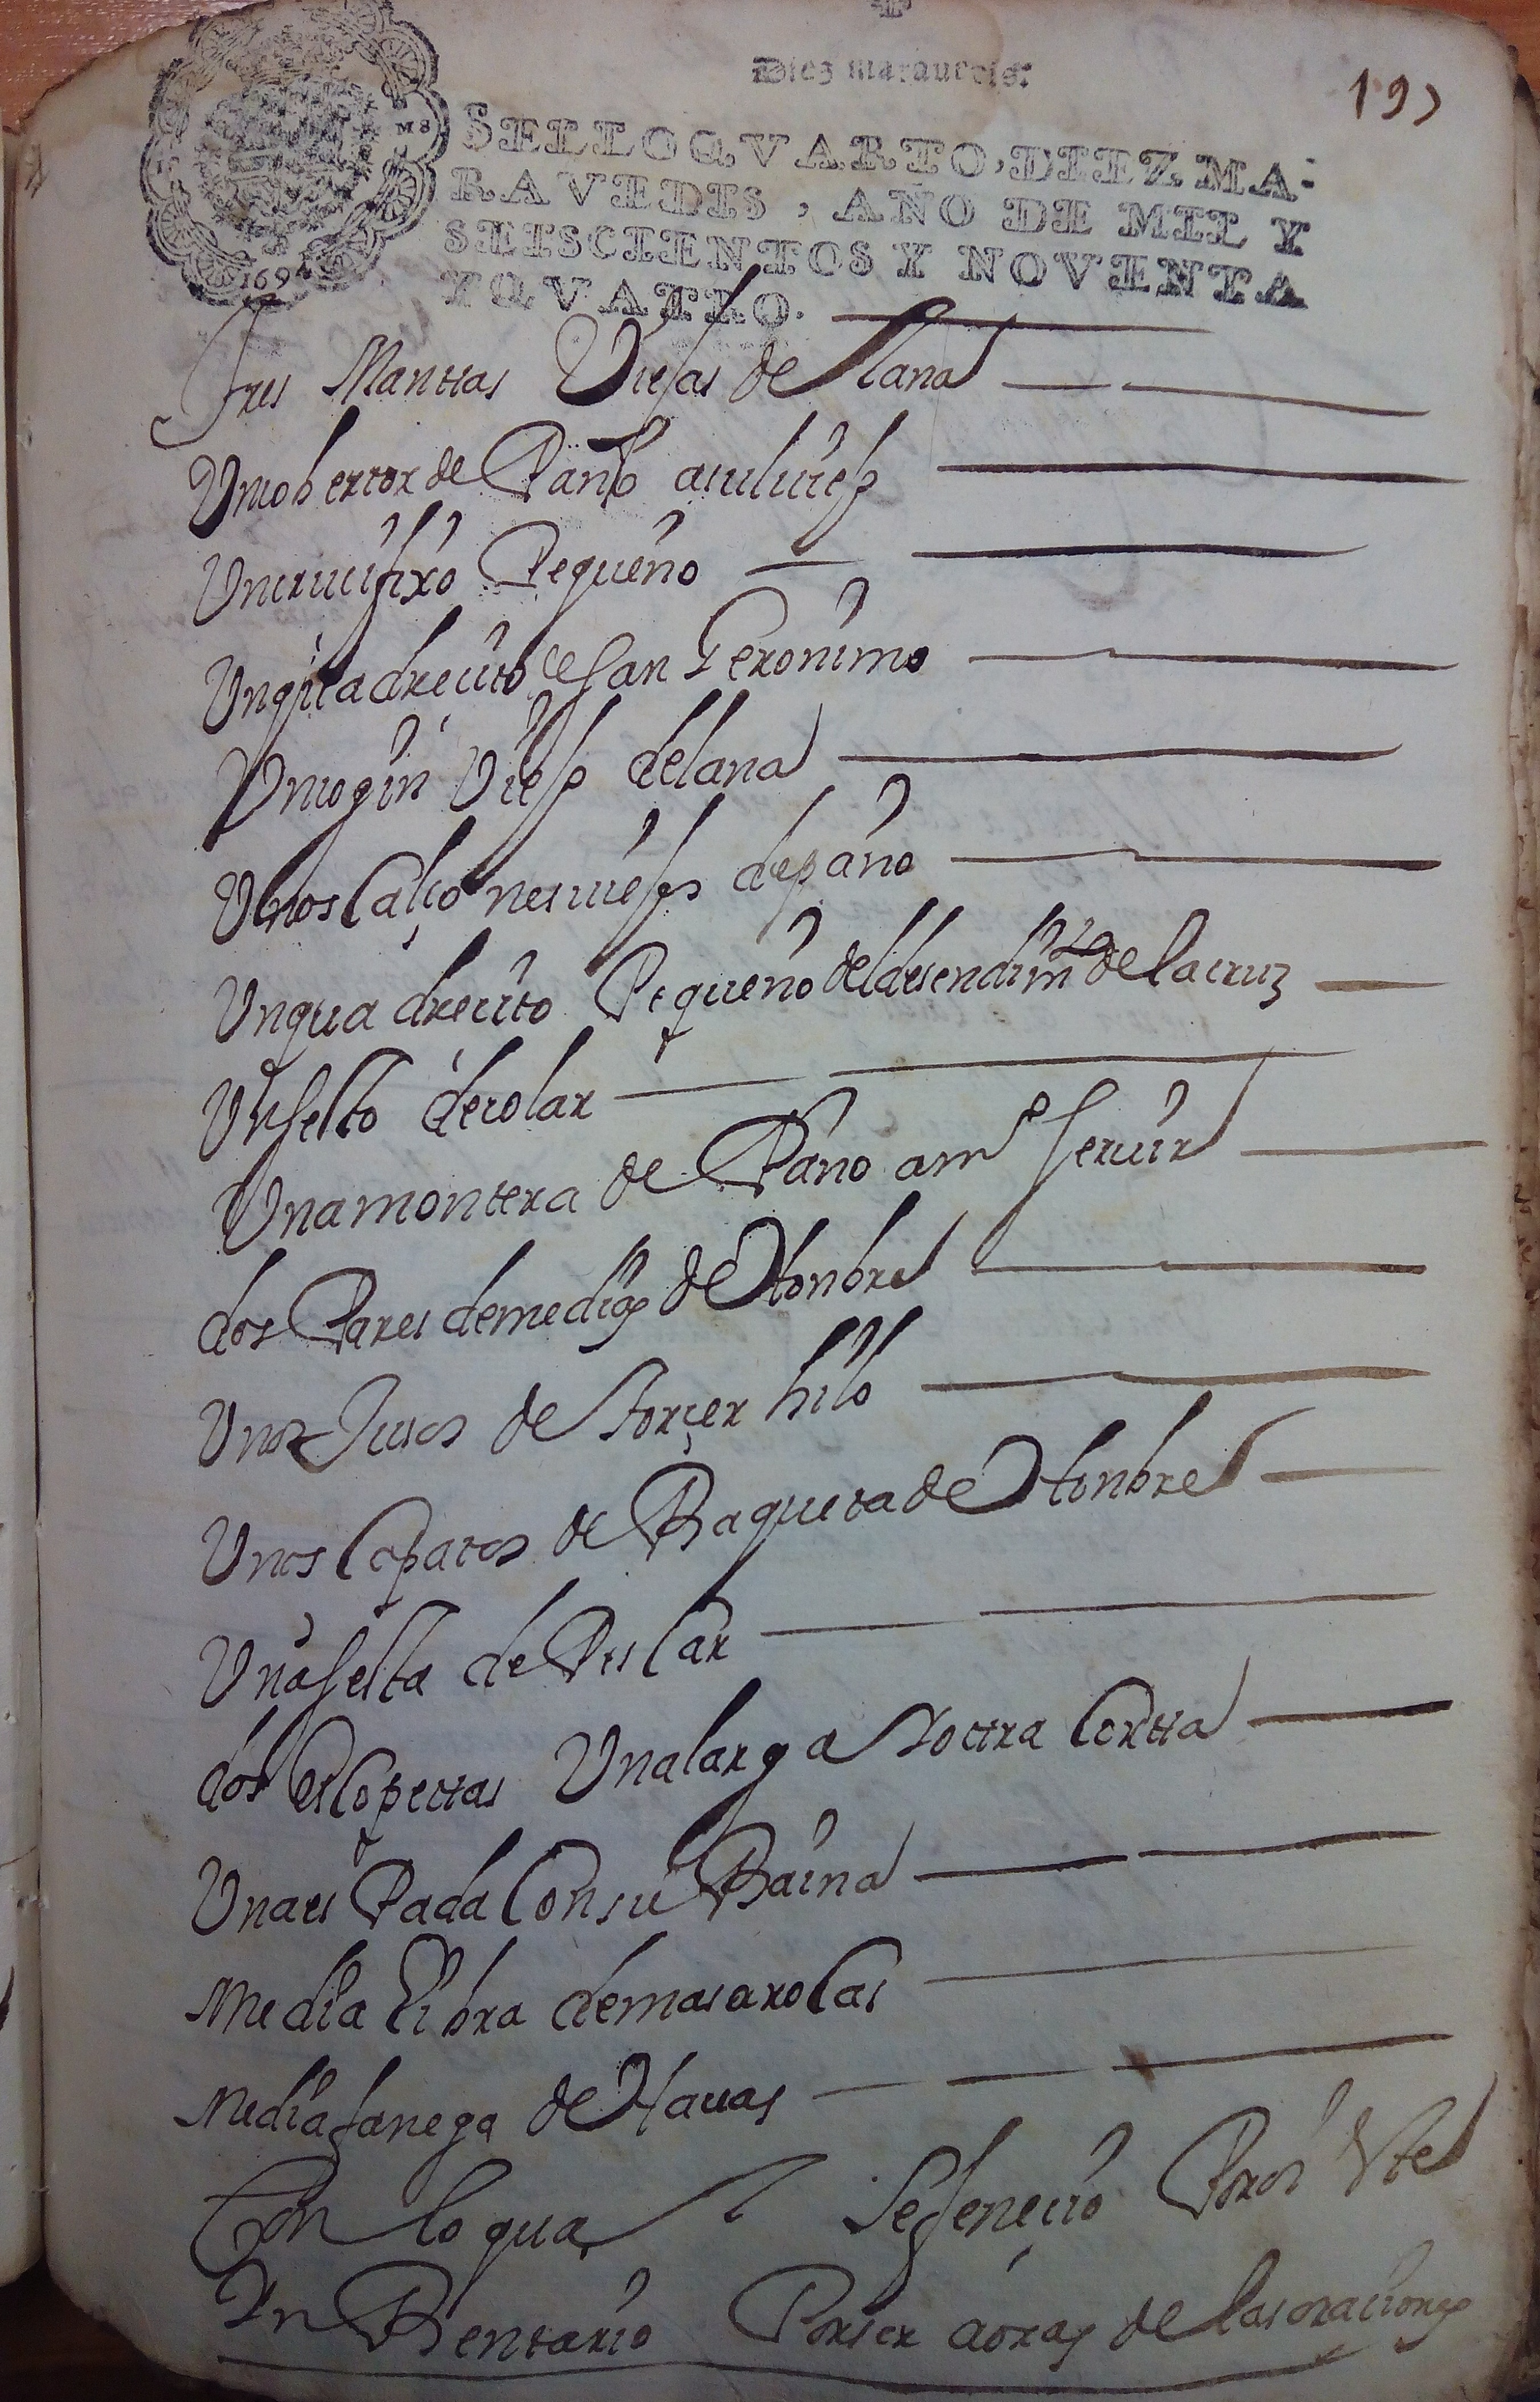 Diez marauedis.
197
SELLO QVARTO, DIEZ MA-
RAVEDIS, AÑO DE MIL Y
SEISCIENTOS Y NOVENTA
Y QVATRO.
1694
Tres Mantas Viejas de lana
Un cobertor de Paño asul viejo
Un crucifixo Pequeño
Un quadrecito de San Geronimo
Un cogin Viejo de lana
Unos calçones viejos de paño
Un quadrecito Pequeño del desendimto de la cruz
Un sesto de colar
Una montera de Paño a mo servir
dos Pares de medias de Honbre
Unos Jusos de torçer hilo
Unos Capatos de Baqueta de Honbre
Una sesta de Pescar
dos escopettas Una larga Y ottra Cortta
Una es Pada Con su Baina
Media libra de masarocas
Media fanega de Havas
Con lo qual se feneçio Por oi Este
In Bentario Por ser aoras de las oraciones